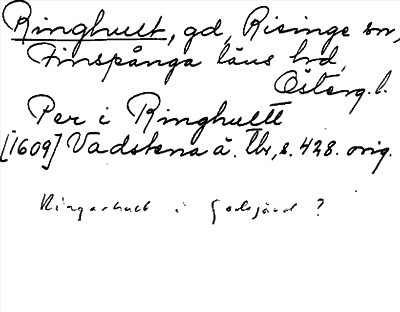 Ringhult, gd, Risinge sn,
Finspånga läns hd,
Österg. l.
Per i Ringhultt
[1609] Vadstena ä. tb, s. 428. orig.
Ringarhult i Godegård ?